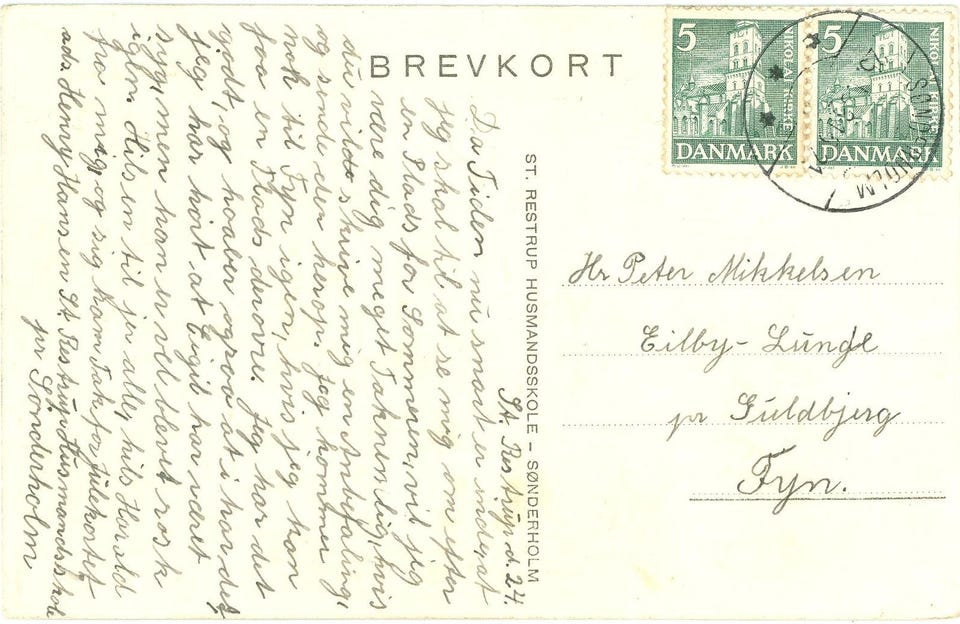 BREVKORT
ST. RESTRUP HUSMANDSSKOLE – SØNDERHOLM
St. Restrup d. 24.
Da Tiden nu snart er inde, at
jeg skal til at se mig om efter
en Plads for Sommeren, vil jeg
være dig meget Taknemlig, hvis
du vilde skrive mig en Anbefaling,
og sende den herop. Jeg kommer
nok til Fyn igen, hvis jeg kan
faa en Plads derovre. Jeg har det
godt, og haaber ogsaa at i har det,
jeg har hört at Eigil har været
syg, men han er vel blevet rask
igen. Hilsen til jer alle, hils Harald
fra mig, og sig ham Tak for Julekortet
ads. Henry Hansen St. Restrup Husmandsskole
pr Sönderholm
5 5
NIKOLAJ KIRKE NIKOLAJ KIRKE
DANMARK DANMARK
SØNDERHOLM
Hr Peter Mikkelsen
Eilby-Lunde
pr Guldbjerg
Fyn.